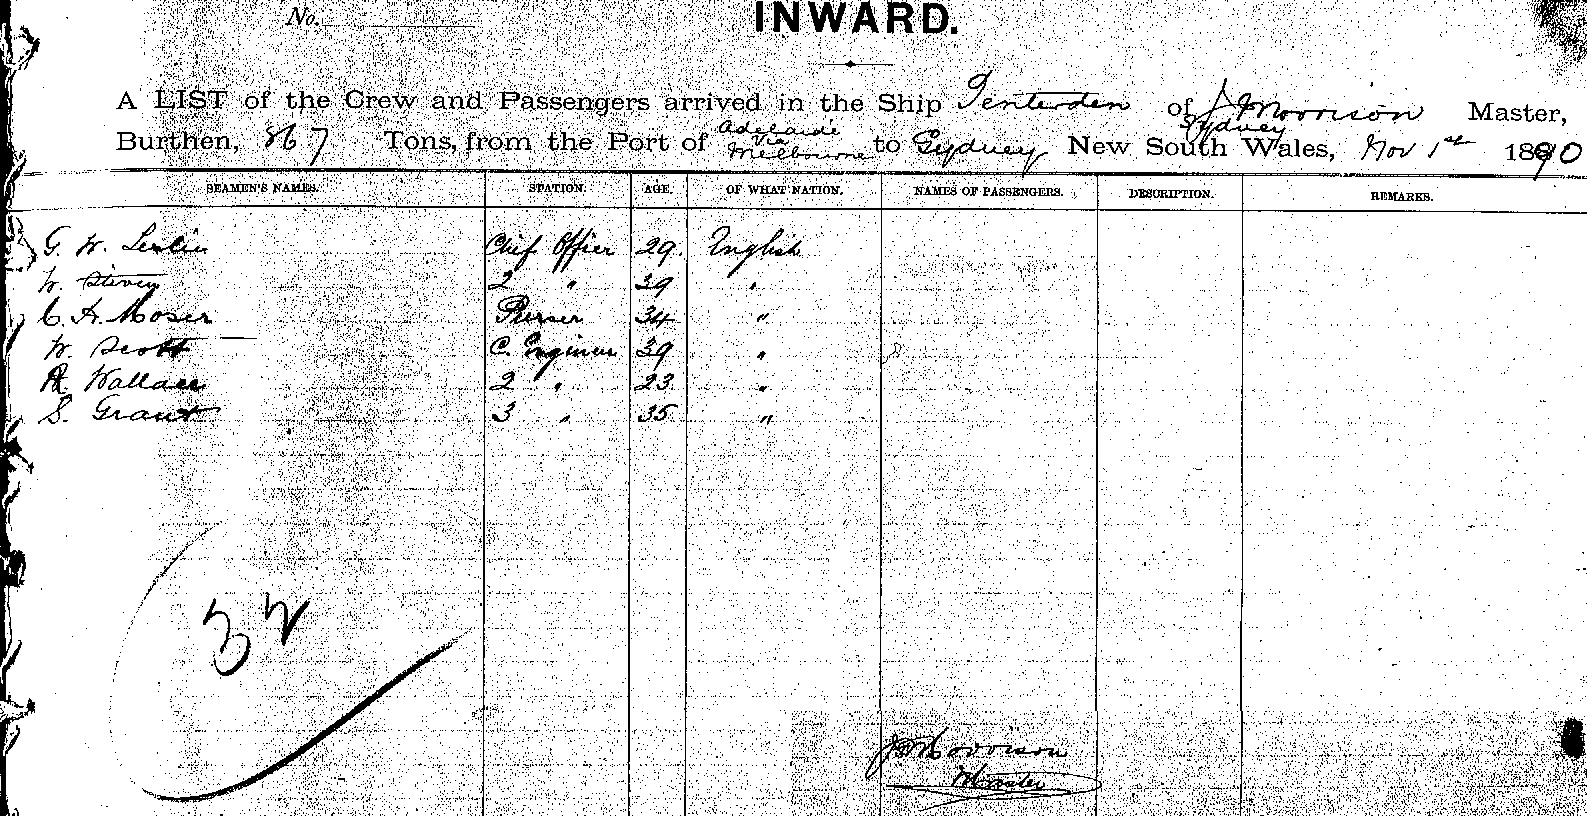 No.
INWARD.
A LIST of the Crew and Passengers arrived in the Ship Tenterden of Sydney J Morrison Master,
Burthen, 867 Tons, from the Port of Adelaide via Melbourne to Sydney New South Wales, Nov 1st 1890
SEAMEN'S NAMES. STATION. AGE. OF WHAT NATION. NAMES OF PASSENGERS. DESCRIPTION. REMARKS.
G. W. Chief Officer 29. English
W. Steven 2 " 39 "
C. A. Moser Purser 34 "
W. Scott C. Engineer 39 "
A. Wallace 2 " 23 "
S. Grant 3 " 35 "
32
J Morrison
Master